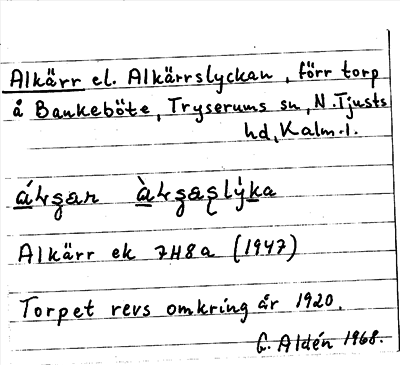 Alkärr el. Alkärrslyckan, förr torp
å Bankeböte, Tryserums sn, N. Tjusts
hd, Kalm. l.
Alkärr ek 7H8a (1947)
Torpet revs omkring år 1920.
G. Aldén 1968.